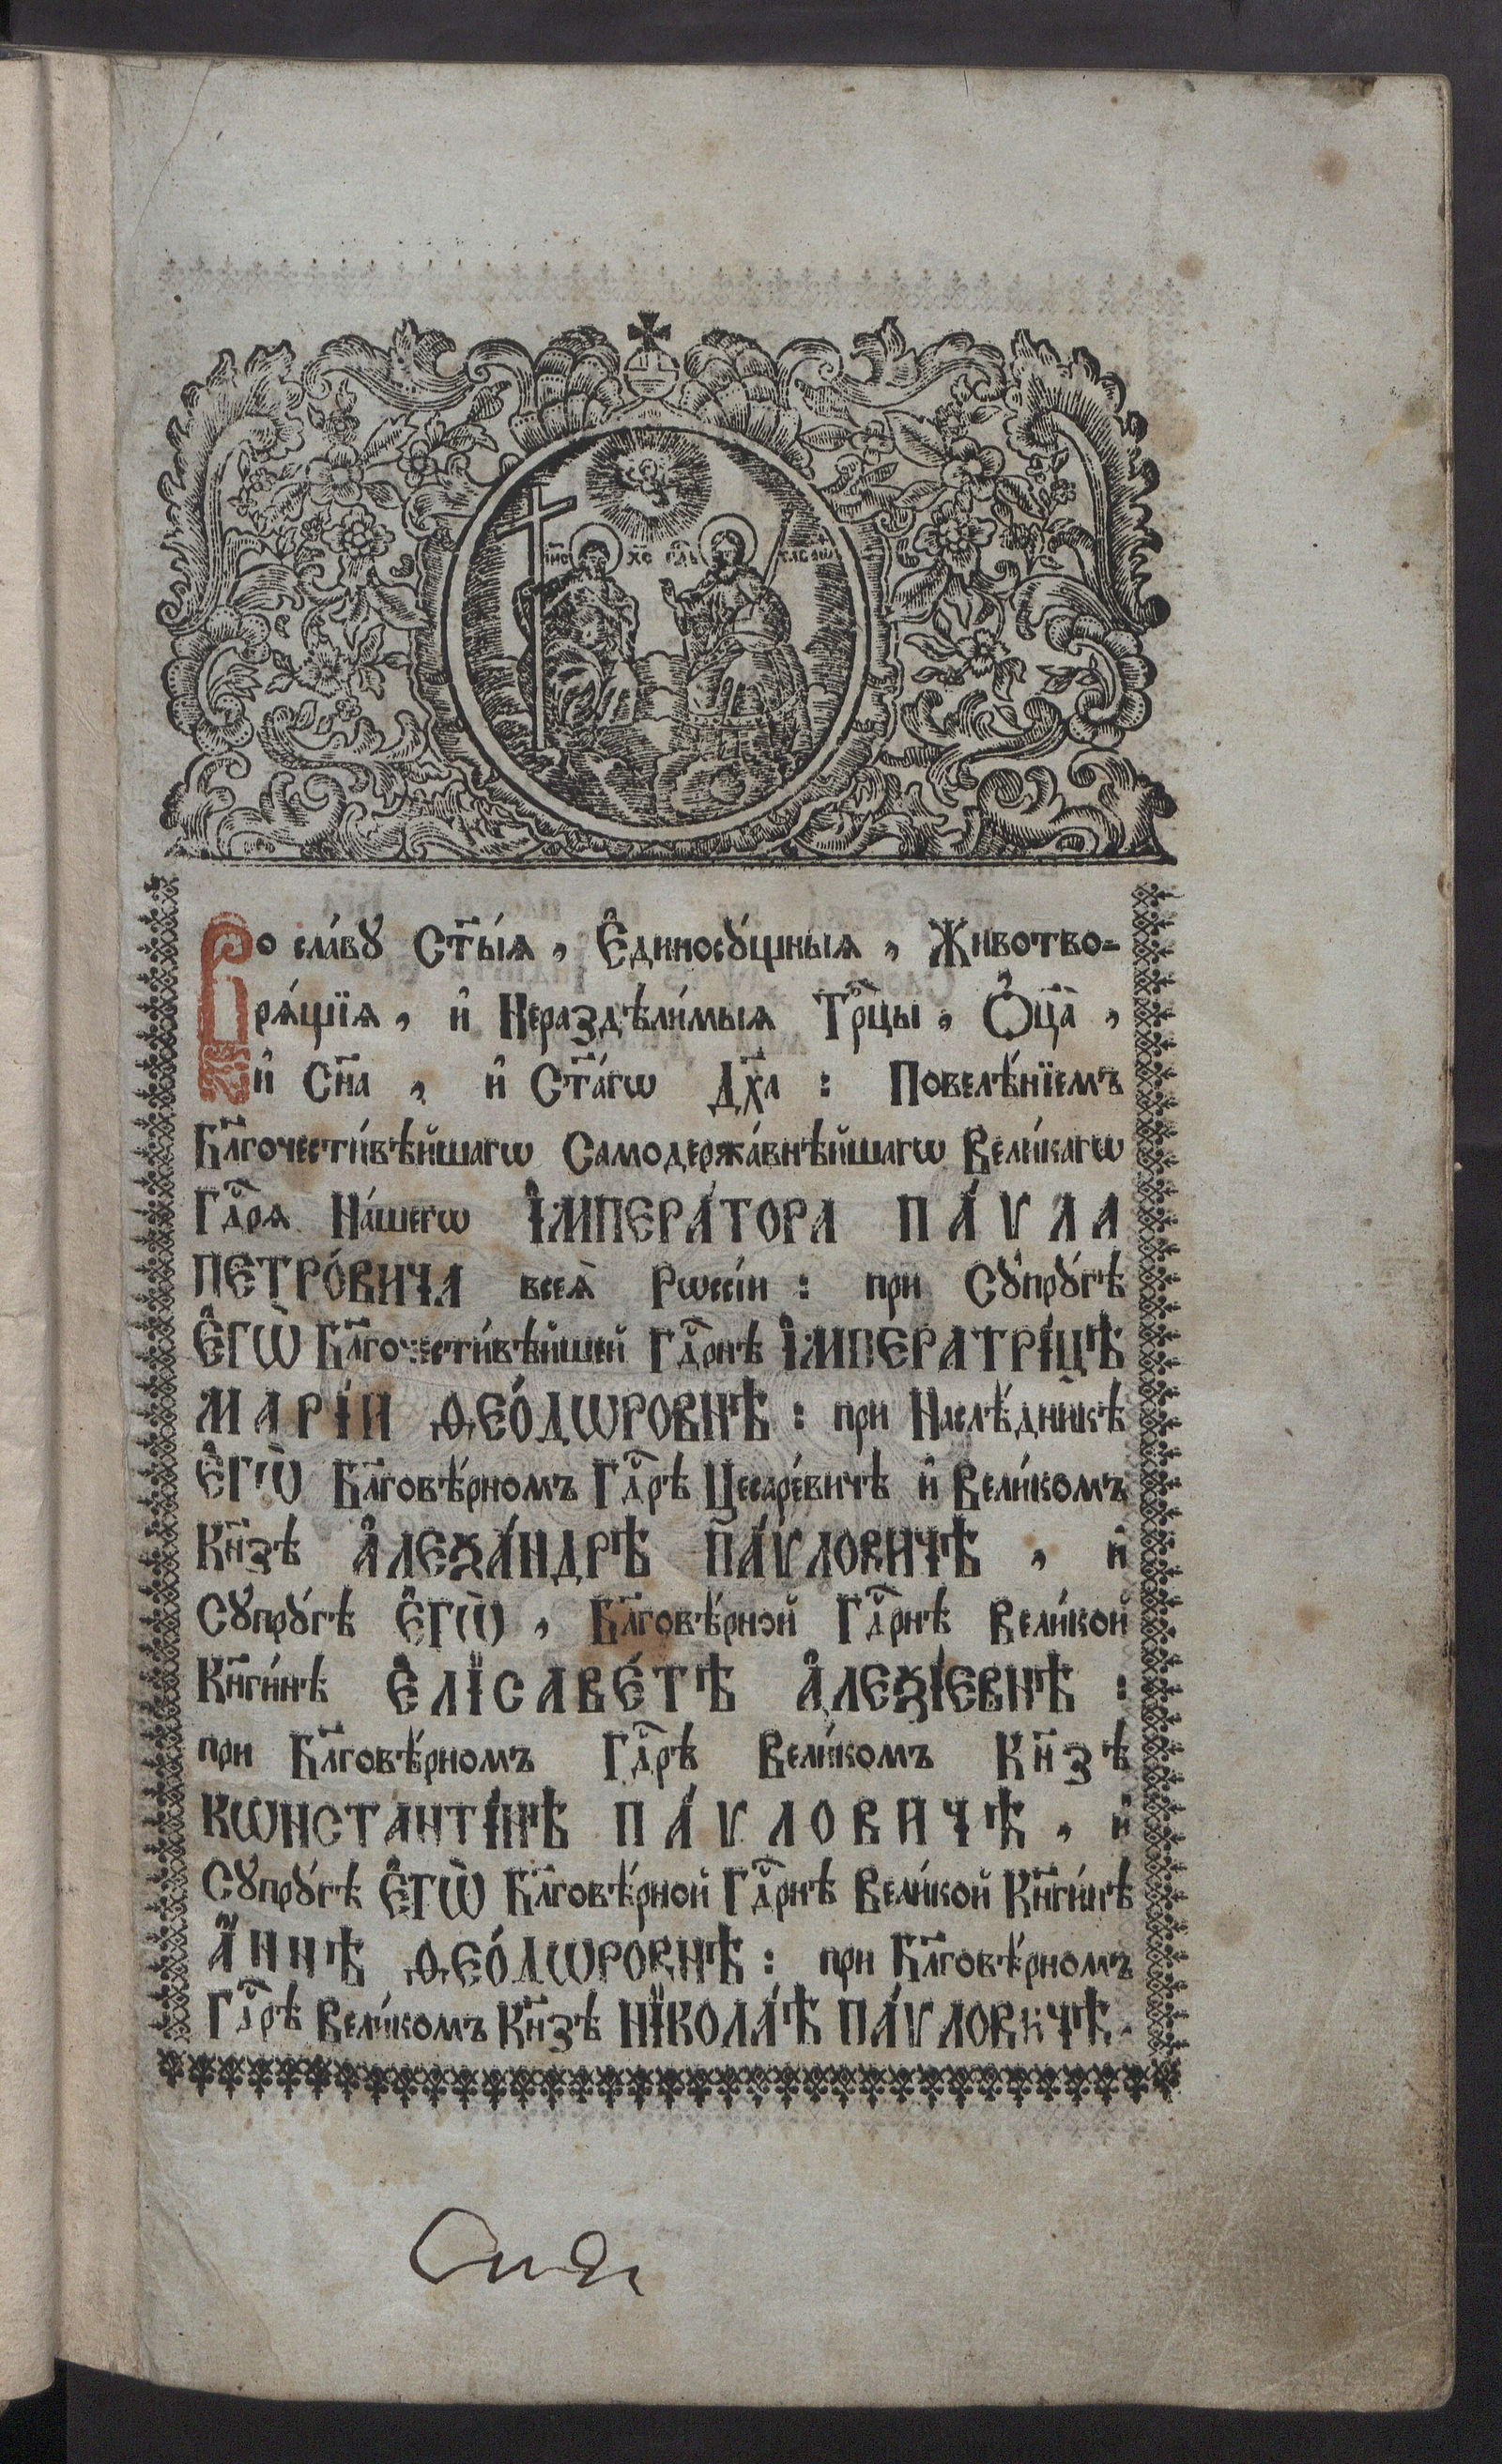 І҆И҃С Х҃С Гд҇ь
Во сла́вꙋ Ст҃ы́ѧ, Є҆диносꙋ́щныѧ, Животво-
рѧ́щїѧ, и҆ Нераздѣли́мыѧ Трⷪ҇цы, Ѻ҆ц҃а̀,
и҆ Сн҃а, и҆ Ст҃а́гѡ Дх҃а: Повелѣ́нїемъ
Бл҃гочести́вѣйшагѡ Самодержа́внѣйшагѡ Вели́кагѡ
Гдⷭ҇рѧ На́шегѡ І҆МПЕРА́ТОРА ПА́ѴЛА
ПЕТРО́ВИЧА всеѧ̀ Рѡссі́и: при Сꙋпрꙋ́гѣ
Є҆ГѠ̀ Бл҃гочести́вѣйшей Гдⷭ҇рнѣ І҆МПЕРАТРІ́ЦѢ
МАРІ́И Ѳ҆ЕО́ДѠРОВНѢ: при Наслѣ́дникѣ
Є҆ГѠ̀ Бл҃говѣ́рномъ Гдⷭ҇рѣ Цесаре́вичѣ и҆ Вели́комъ
Кн҃зѣ А҆ЛЕѮА́НДРѢ ПА́ѴЛОВИЧѢ, и҆
Сꙋпрꙋ́гѣ Є҆ГѠ̀, Бл҃говѣ́рной Гдⷭ҇рнѣ Вели́кой
Кн҃ги́нѣ Є҆ЛІСАВЕ́ТѢ А҆ЛЕѮІ́ЕВНѢ:
при Бл҃говѣ́рномъ Гдⷭ҇рѣ Вели́комъ Кн҃зѣ
КѠНСТАНТІ́НѢ ПА́ѴЛОВИЧѢ, и҆
Сꙋпрꙋ́гѣ Є҆ГѠ̀ Бл҃говѣ́рной Гдⷭ҇рнѣ Вели́кой Кн҃ги́нѣ
А҆́ННѢ Ѳ҆ЕО́ДѠРОВНѢ: при Бл҃говѣ́рномъ
Гдⷭ҇рѣ Вели́комъ Кн҃зѣ НІКОЛА́Ѣ ПА́ѴЛОВИЧѢ.